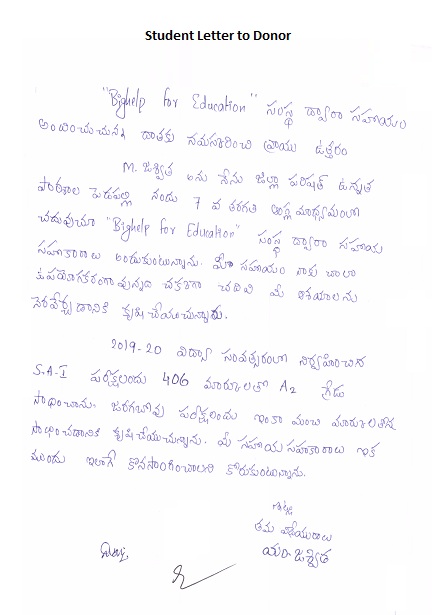 Student Letter to Donor
"Bighelp for Education" సంస్థ ద్వారా సహాయం
అందించుచున్న దాతకు నమస్కరించి వ్రాయు ఉత్తరం
M. జశ్విత అను నేను జిల్లా పరిషత్ ఉన్నత
పాఠశాల పెదపల్లి నందు 7 వ తరగతి ఆంగ్ల మాధ్యమంలో
చదువుచూ "Bighelp for Education" సంస్థ ద్వారా సహాయ
సహకారాలు అందుకుంటున్నాను. మీ సహాయం నాకు చాలా
ఉపయోగకరంగా వున్నది చక్కగా చదివి మీ ఆశయాలను
నెరవేర్చుడానికి కృషి చేయుచున్నారు.
2019-20 విద్యా సంవత్సరంలో నిర్వహించిన
S.A-I పరీక్షలందు 406 మార్కులతో A2 గ్రేడు
సాధించాను. జరగబోవు పరీక్షలందు ఇంకా మంచి మార్కులతో
సాధించడానికి కృషి చేయుచున్నాను. మీ సహాయ సహకారాలు ఇక
ముందు ఇలాగే కొనసాగించాలని కోరుకుంటున్నాను.
ఇట్లు
తమ విధేయురాలు
యం. జశ్విత